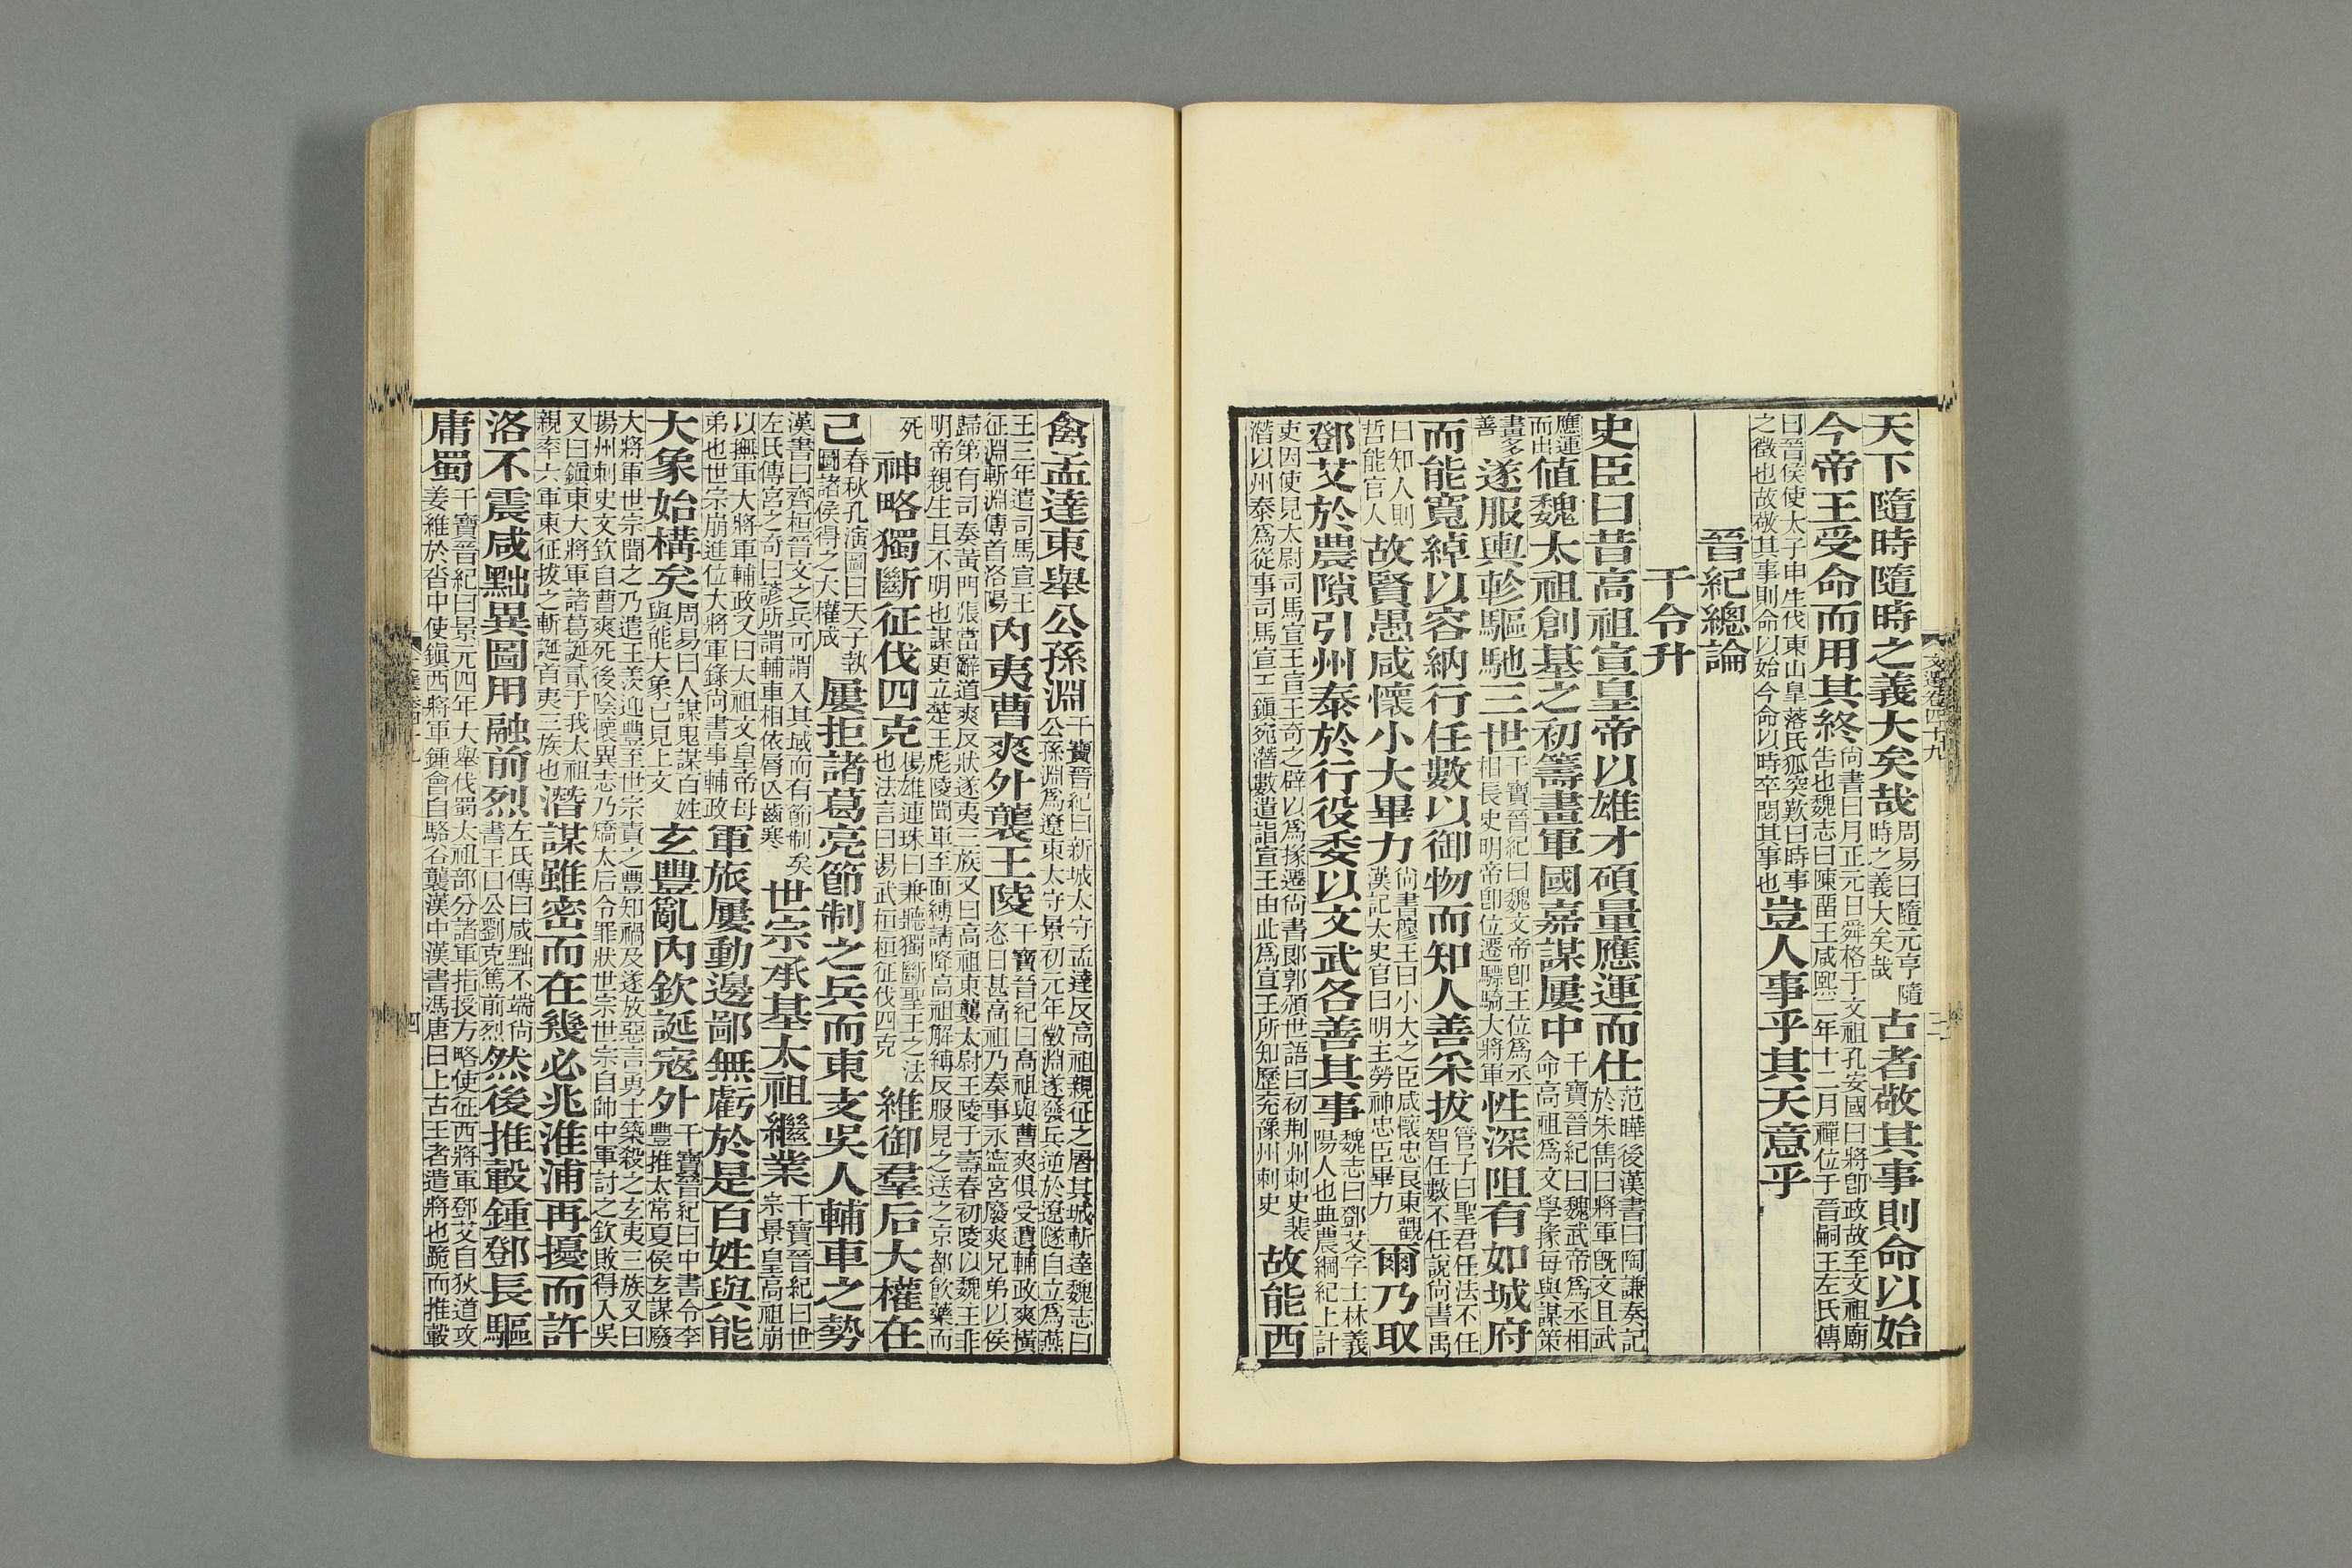 文選卷四十九
三
天下隨時隨時之義大矣哉周易曰隨元亨隨時之義大矣哉古者敬其事則命以始
今帝王受命而用其終尙書曰月正元日舜格于文祖孔安國曰將卽政故至文祖廟告也魏志曰陳畱王咸熙二年十二月禪位于晉嗣王左氏傳
曰晉侯使太子申生伐東山皐落氏狐突歎曰時事之徵也故敬其事則命以始今命以時卒閟其事也豈人事乎其天意乎
晉紀總論
干令升
史臣曰昔高祖宣皇帝以雄才碩量應運而仕范曄後漢書曰陶謙奏記於朱雋曰將軍旣文且武
應運而出值魏太祖創基之初籌畫軍國嘉謀屢中干寶晉紀曰魏武帝爲丞相命高祖爲文學掾每與謀策
畫多善遂服輿軫驅馳三世干寶晉紀曰魏文帝卽王位爲丞相長史明帝卽位遷驃騎大將軍性深阻有如城府
而能寬綽以容納行任數以御物而知人善采拔管子曰聖君任法不任智任數不任說尙書禹
曰知人則哲能官人故賢愚咸懷小大畢力尙書穆王曰小大之臣咸懷忠良東觀漢記太史官曰明主勞神忠臣畢力爾乃取
鄧艾於農隙引州泰於行役委以文武各善其事魏志曰鄧艾字士林義陽人也典農綱紀上計
吏因使見太尉司馬宣王宣王奇之辟以爲掾遷尙書郞郭頒世語曰初荆州刺史裴潛以州泰爲從事司馬宣王鎭宛潛數遣詣宣王由此爲宣王所知歷兖豫州刺史故能西
禽孟達東舉公孫淵干寶晉紀曰新城太守孟達反高祖親征之屠其城斬達魏志曰公孫淵爲遼東太守景初元年徵淵遂發兵逆於遼隧自立爲燕
王三年遣司馬宣王征淵斬淵傳首洛陽內夷曹爽外襲王陵干寶晉紀曰高祖與曹爽俱受遺輔政爽橫恣日甚高祖乃奏事永寧宮廢爽兄弟以侯
歸第有司奏黃門張當辭道爽反狀遂夷三族又曰高祖東襲太尉王陵于壽春初陵以魏王非明帝親生且不明也謀更立楚王彪陵聞軍至面縛請降高祖解縛反服見之送之京都飮藥而
死神略獨斷征伐四克楊雄連珠曰兼聽獨斷聖王之法也法言曰湯武桓桓征伐四克維御羣后大權在
己春秋孔演圖曰天子執圖諸侯得之大權成屢拒諸葛亮節制之兵而東支吳人輔車之勢
漢書曰齊桓晉文之兵可謂入其域而有節制矣左氏傳宮之奇曰諺所謂輔車相依脣亾齒寒世宗承基太祖繼業干寶晉紀曰世宗景皇高祖崩
以撫軍大將軍輔政又曰太祖文皇帝母弟也世宗崩進位大將軍錄尙書事輔政軍旅屢動邊鄙無虧於是百姓與能
大象始構矣周易曰人謀鬼謀百姓與能大象已見上文玄豐亂內欽誕寇外干寶晉紀曰中書令李豐推太常夏侯玄謀廢
大將軍世宗聞之乃遣王羨迎豐至世宗責之豐知禍及遂放惡言勇士築殺之玄夷三族又曰揚州刺史文欽自曹爽死後陰懷異志乃矯太后令罪狀世宗世宗自帥中軍討之欽敗得入吳
又曰鎭東大將軍諸葛誕貳于我太祖親率六軍東征拔之斬誕首夷三族也潛謀雖密而在幾必兆淮浦再擾而許
洛不震咸黜異圖用融前烈左氏傳曰咸黜不端尙書王曰公劉克篤前烈然後推轂鍾鄧長驅
庸蜀干寶晉紀曰景元四年大舉伐蜀太祖部分諸軍指授方略使征西將軍鄧艾自狄道攻姜維於沓中使鎭西將軍鍾會自駱谷襲漢中漢書馮唐曰上古王者遣將也跪而推轂
四